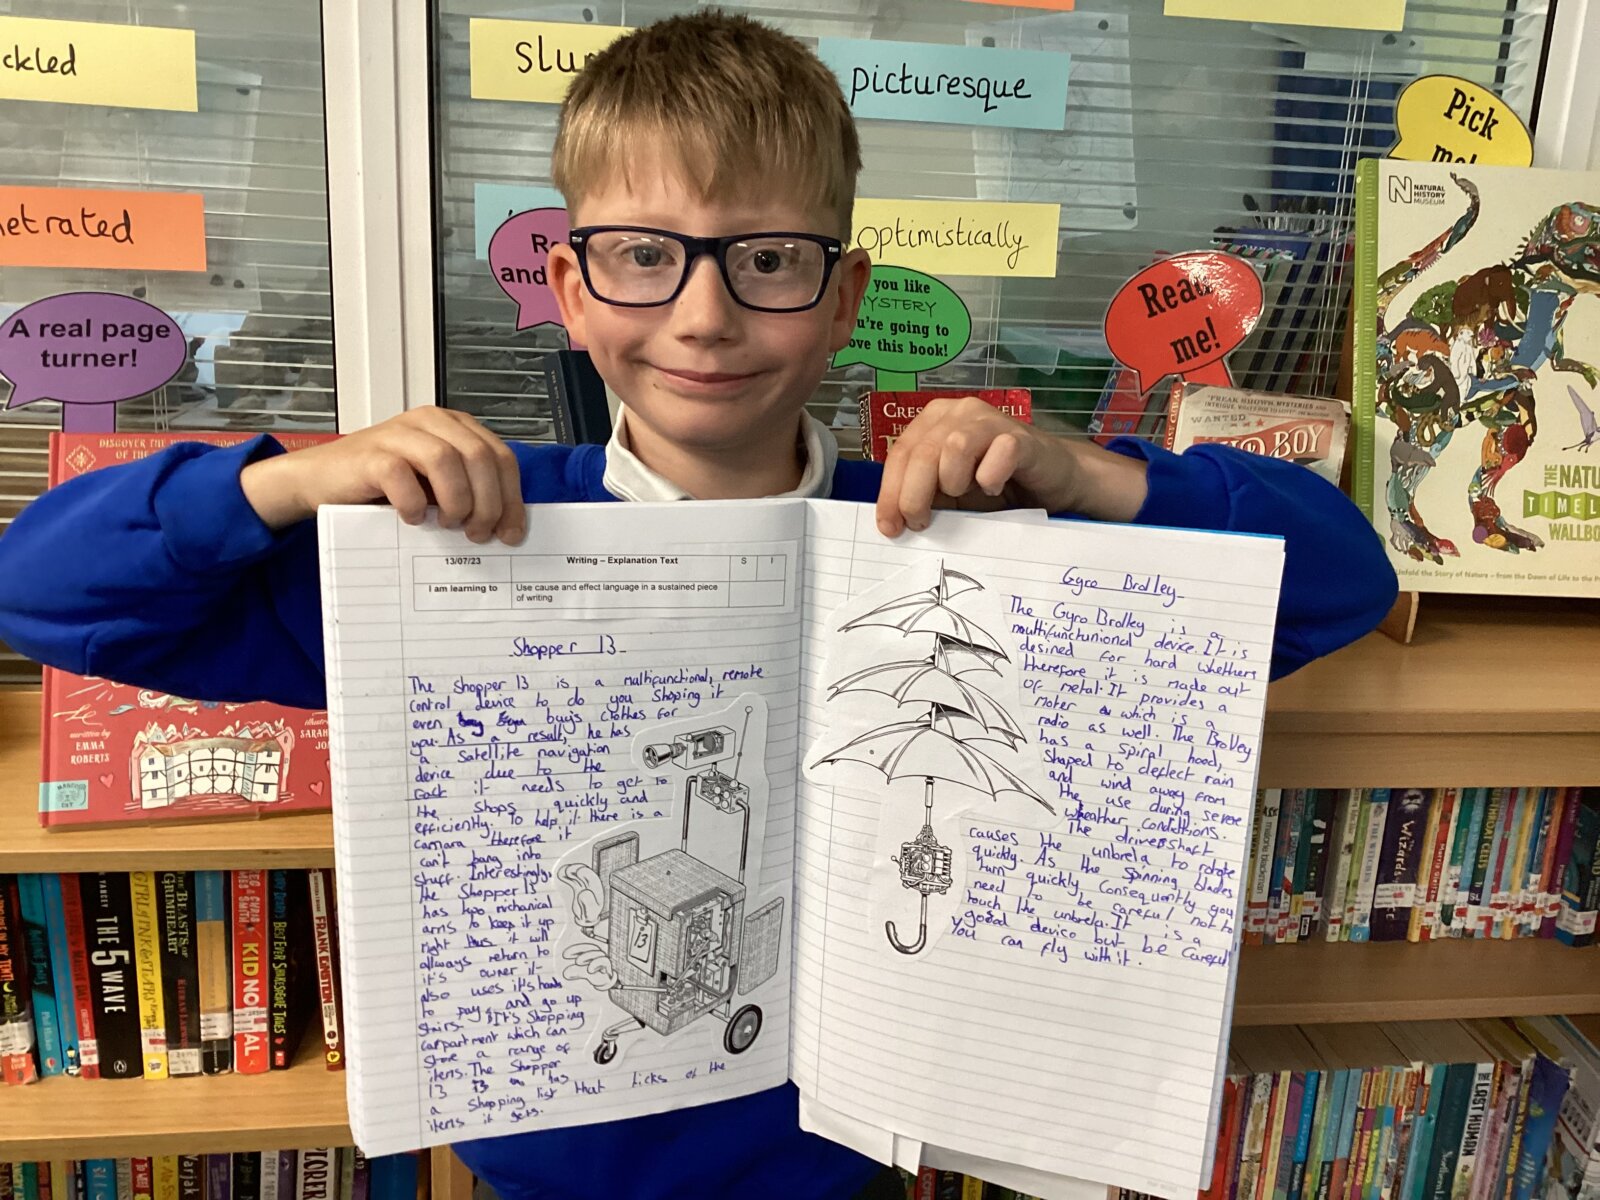 ckled
slu
picturesque
Pick
me!
NATURAL
HISTORY
MUSEUM
etrated
optimistically
A real page
turner!
Re
and
you like
MYSTERY
u're going to
ove this book!
Read
me!
CRES
"FREAK SHOWS, MYSTERIES
WANTED
BOY
THE NATU
TIMEL
WALLBO
Unfold the Story of Nature – from the Dawn of Life to the
written by
EMMA
ROBERTS
SARAH
13/07/23
Writing – Explanation Text
S
I
I am learning to
Use cause and effect language in a sustained piece
of writing
Shopper 13
The Shopper 13 is a multifunctional, remote
control device to do you Shoping it
even buys clothes for
you. As a result, he has
a Satellite navigation
device due to the
it needs to get to
the shops quickly and
efficiently. To help it there is a
camara therefore it
can't bang into
stuff. Interestingly,
the Shopper 13
has two michanical
arms to keep it up
right thus it will
allways return to
it's owner it
also uses it's hands
to pay, and go up
stairs. It's Shopping
carpartment which can
store a range of
items. The Shopper
13 has
a Shopping list that ticks of the
items it gets.
13
Gyro Brolley
The Gyro Brolley is a
multifunctunional device. It is
desined for hard whethers
therefore it is made out
of metal. It provides a
moter which is a
radio as well. The Brolley
has a spiral hood,
Shaped to deflect rain
and wind away from
the use during severe
wheather conditions.
The driveshaft
causes the unbrela to rotate
quickly. As the Spinning blades
turn quickly, Consequently you
need to be careful not to
touch the unbrela. It is a
good device but be careful
You can fly with it.
THE 5TH WAVE
BEASTS OF
GRIMHEART
KID NORMAL
BEST EVER SHAKESPEARE TALES
FRANKENSTION
Varjak
THE LAST HUMAN